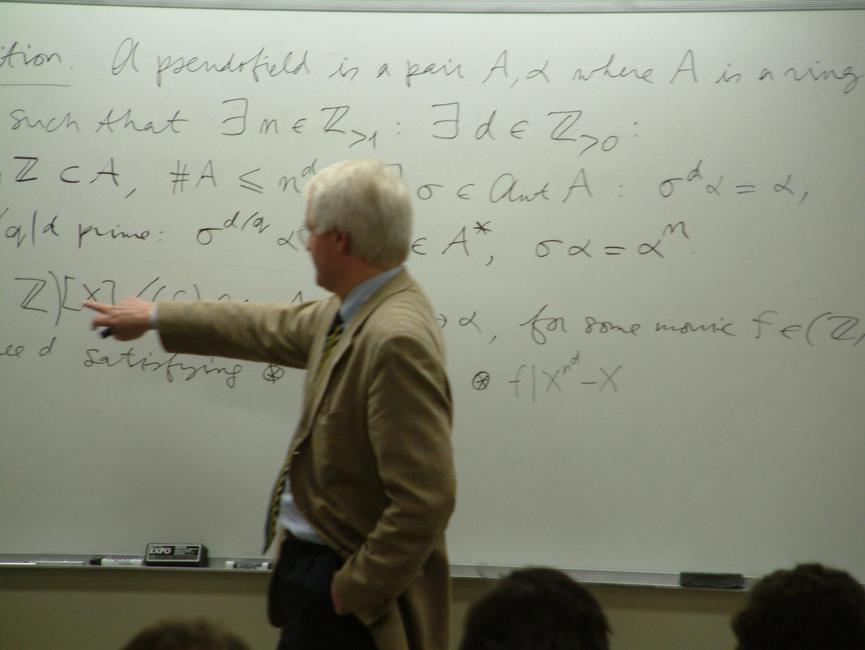 ition. A pseudofield is a pair A, α where A is a ring
such that ∃ n ∈ ℤ>1 : ∃ d ∈ ℤ>0 :
ℤ ⊂ A, #A ≤ n^d σ ∈ Aut A : σ^d α = α,
q|d prime: σ^{d/q} α ∈ A*, σα = α^n.
ℤ)[X] α, for some monic f ∈ (ℤ/
d satisfying ⊛ ⊛ f | X^{n^d} - X
EXPO